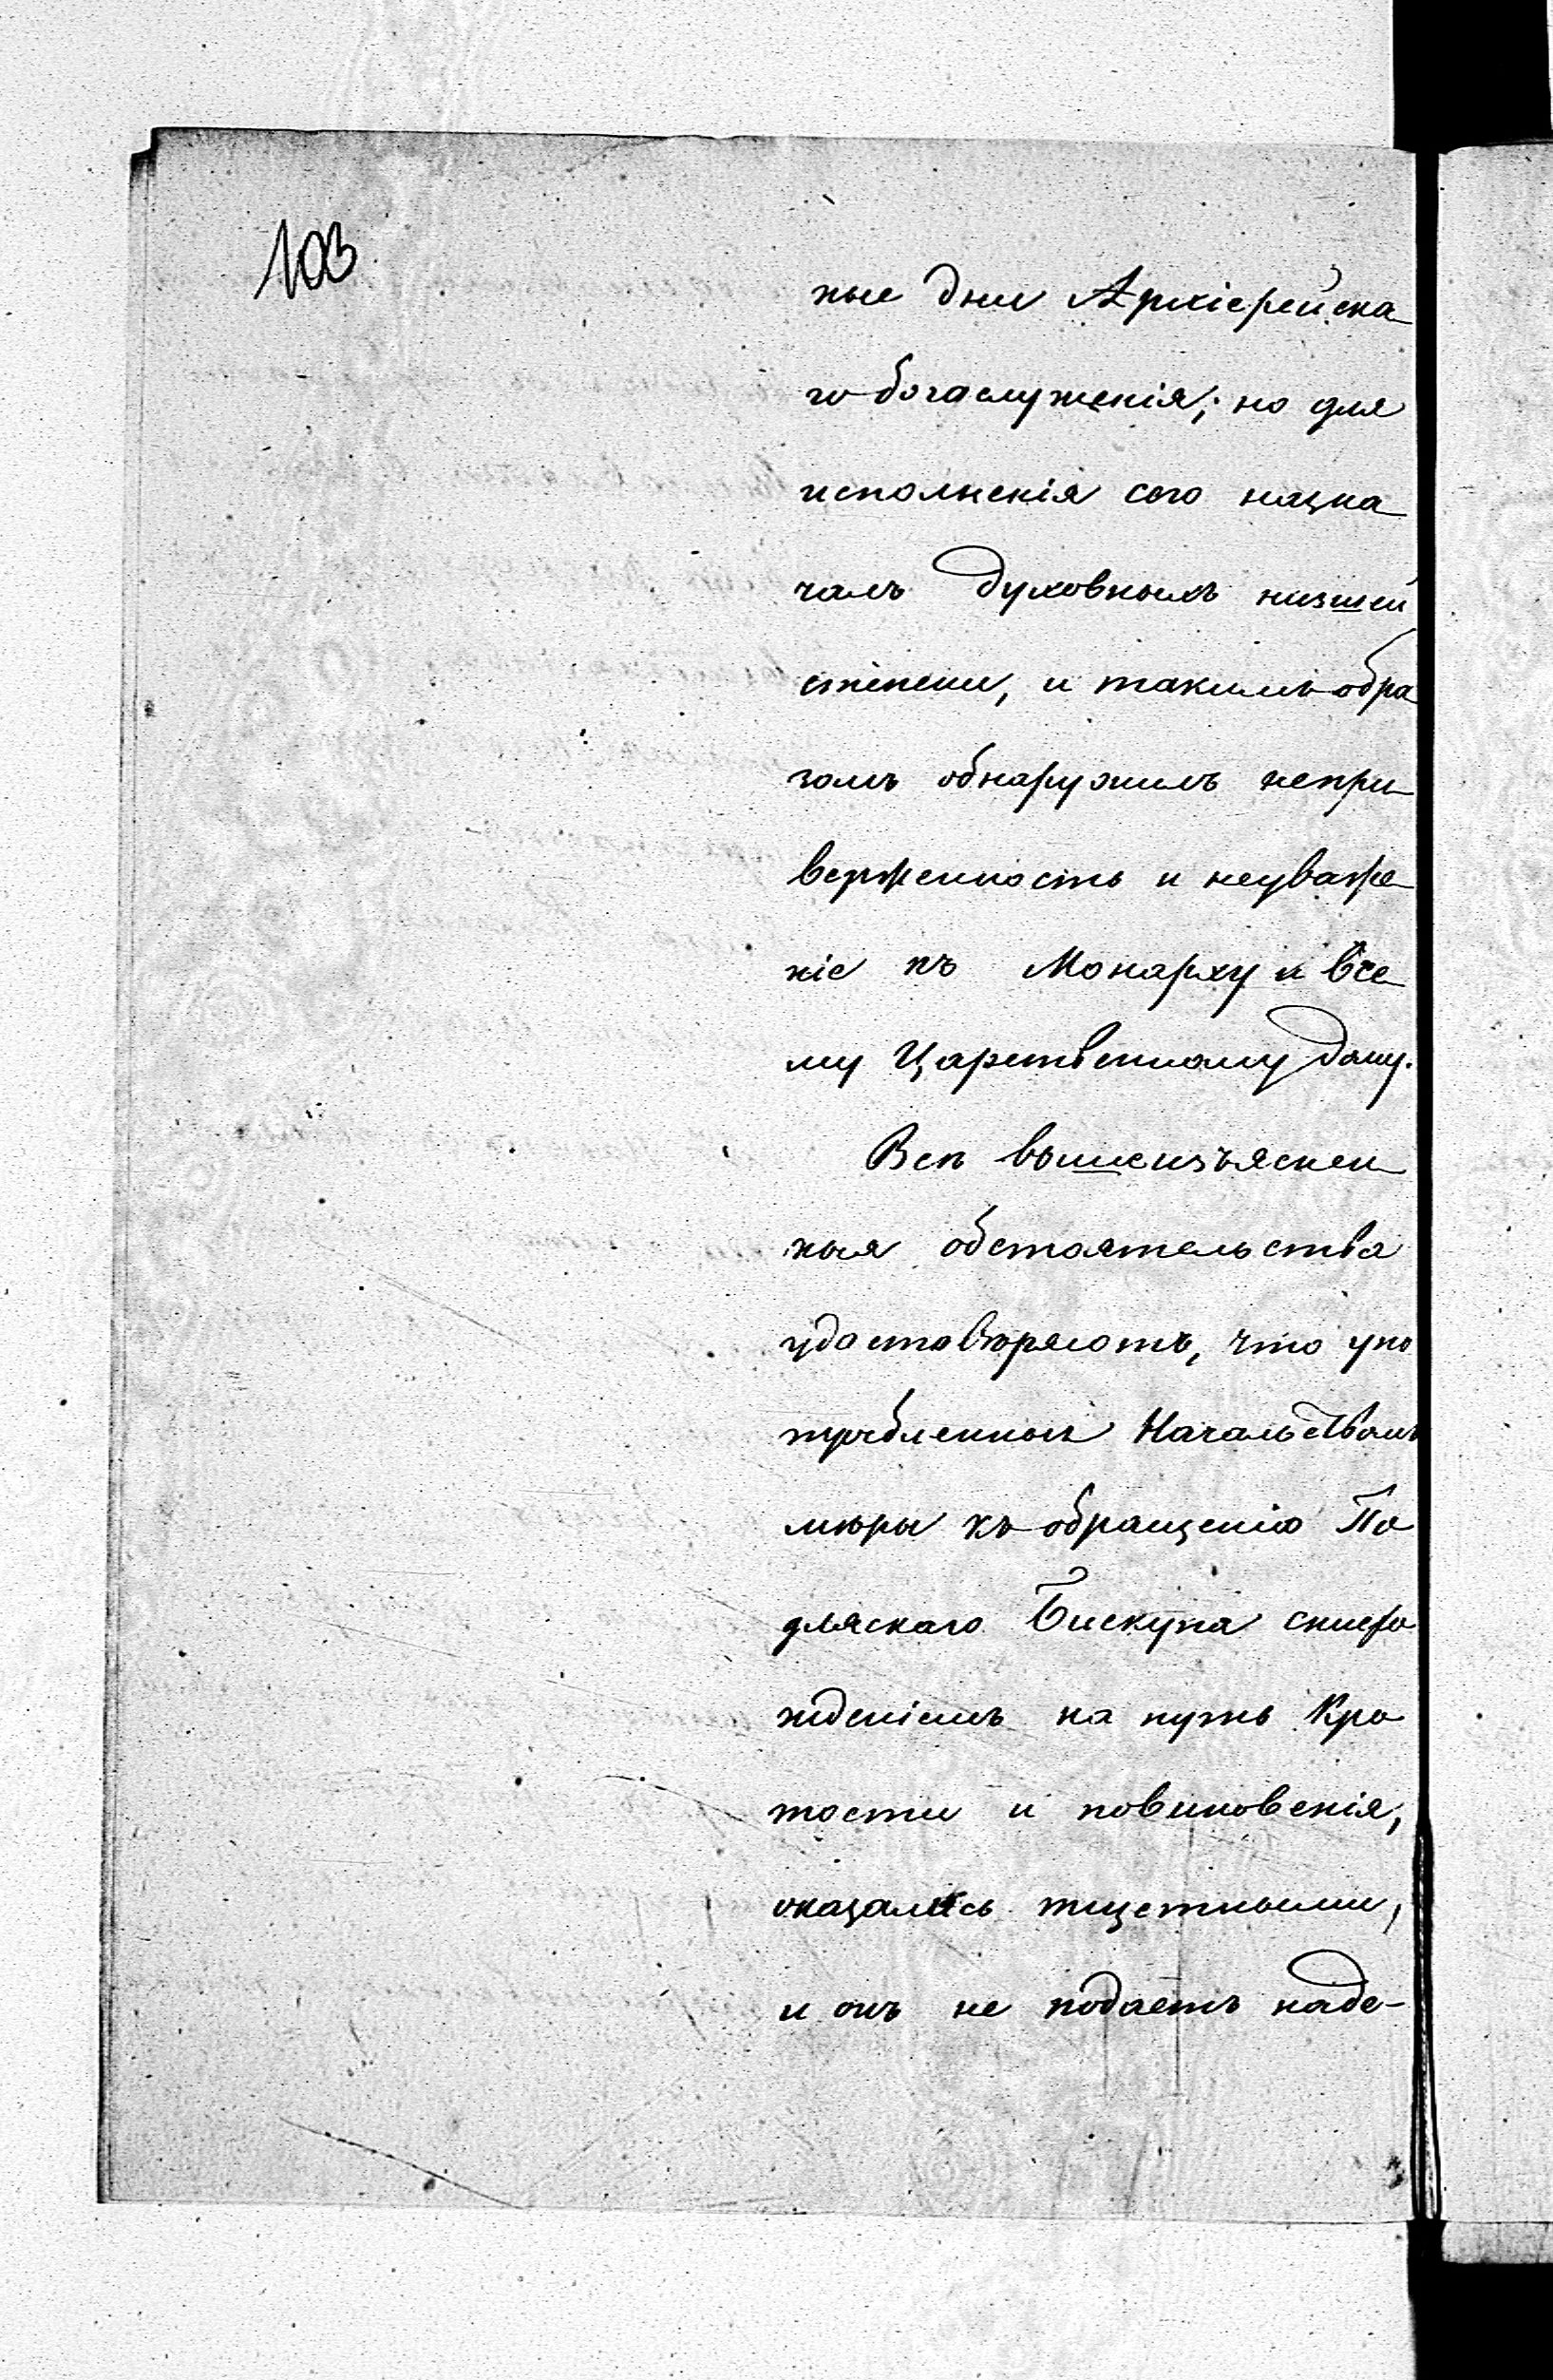 103
ные дни Архіерейска
го богаслуженія; но для
исполненія сего назна
чалъ духовныхъ низшей
степени, и такимъ обра
зомъ обнаружилъ непри
верженность и неуваже
ніе къ Монарху и Все
му Царственному дому.
Всѣ вышеизъяснен
ныя обстоятельства
удостовѣряютъ, что упо
требленныя Начальствомъ
мѣры къ обращенію По
дляскаго Бискупа снисхо
жденіемъ на путь Кро
тости и повиновенія,
оказались тщетными,
и онъ не подаетъ наде-